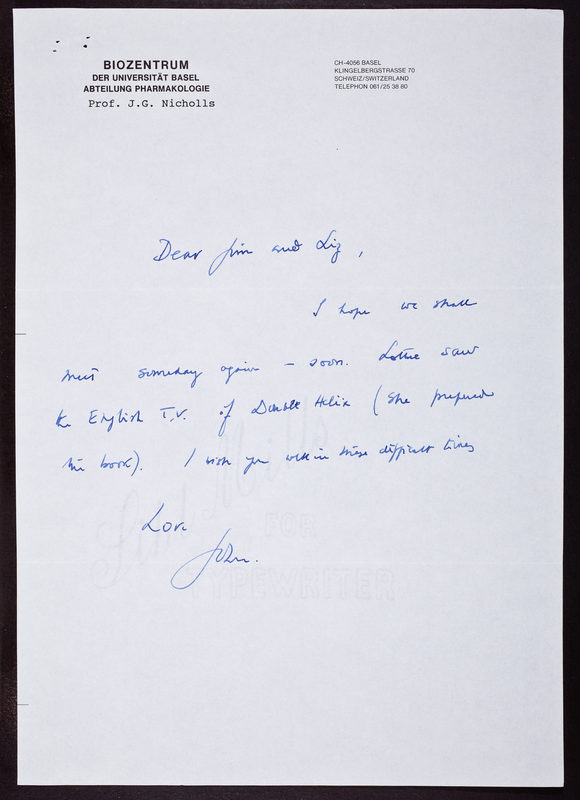 BIOZENTRUM
DER UNIVERSITÄT BASEL
ABTEILUNG PHARMAKOLOGIE
Prof. J.G. Nicholls
CH-4056 BASEL
KLINGELBERGSTRASSE 70
SCHWEIZ/SWITZERLAND
TELEPHON 061/25 38 80
Dear Jim and Liz,
I hope we shall
meet someday again – soon. Lottie saw
the English T.V. of Double Helix (she preferred
the book). I wish you well in these difficult times
Love
John.
FOR
TYPEWRITER